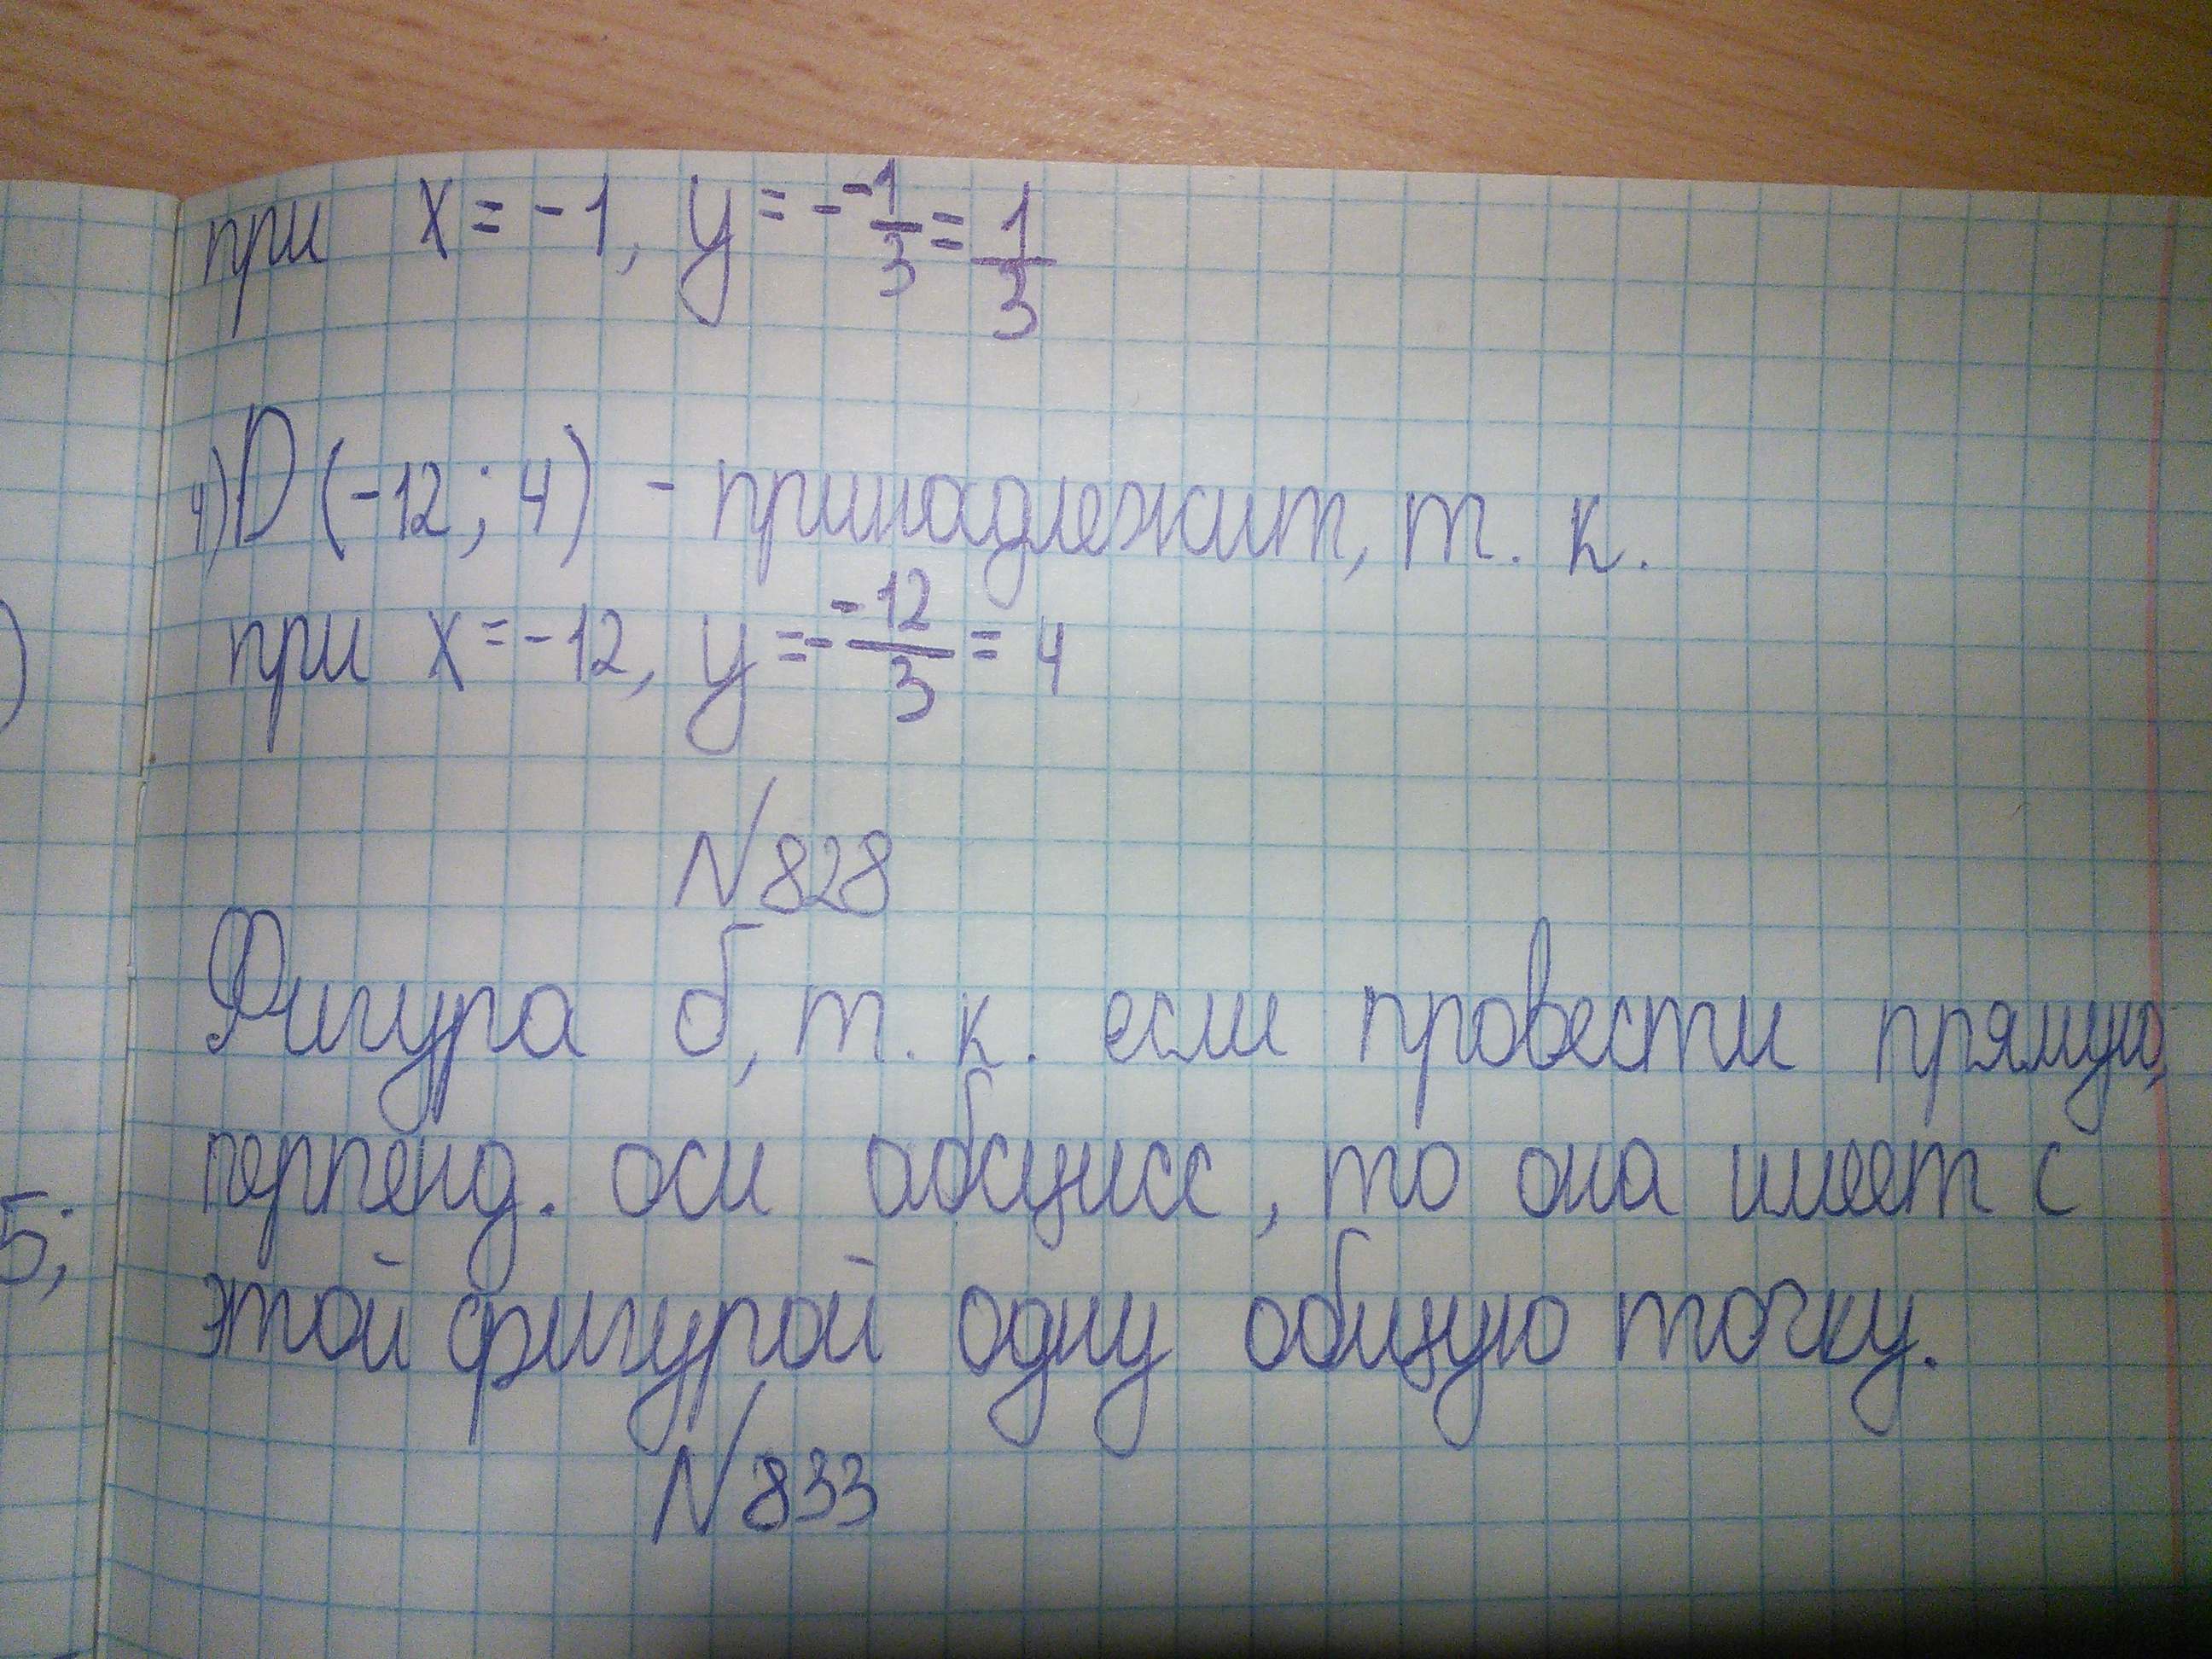 при x = -1, y = - -1/3 = 1/3
4) D (-12; 4) - принадлежит, т. к.
при x = -12, y = - -12/3 = 4
N828
Фигура б, т. к. если провести прямую,
перпенд. оси абсцисс, то она имеет с
5;
этой фигурой одну общую точку.
N833